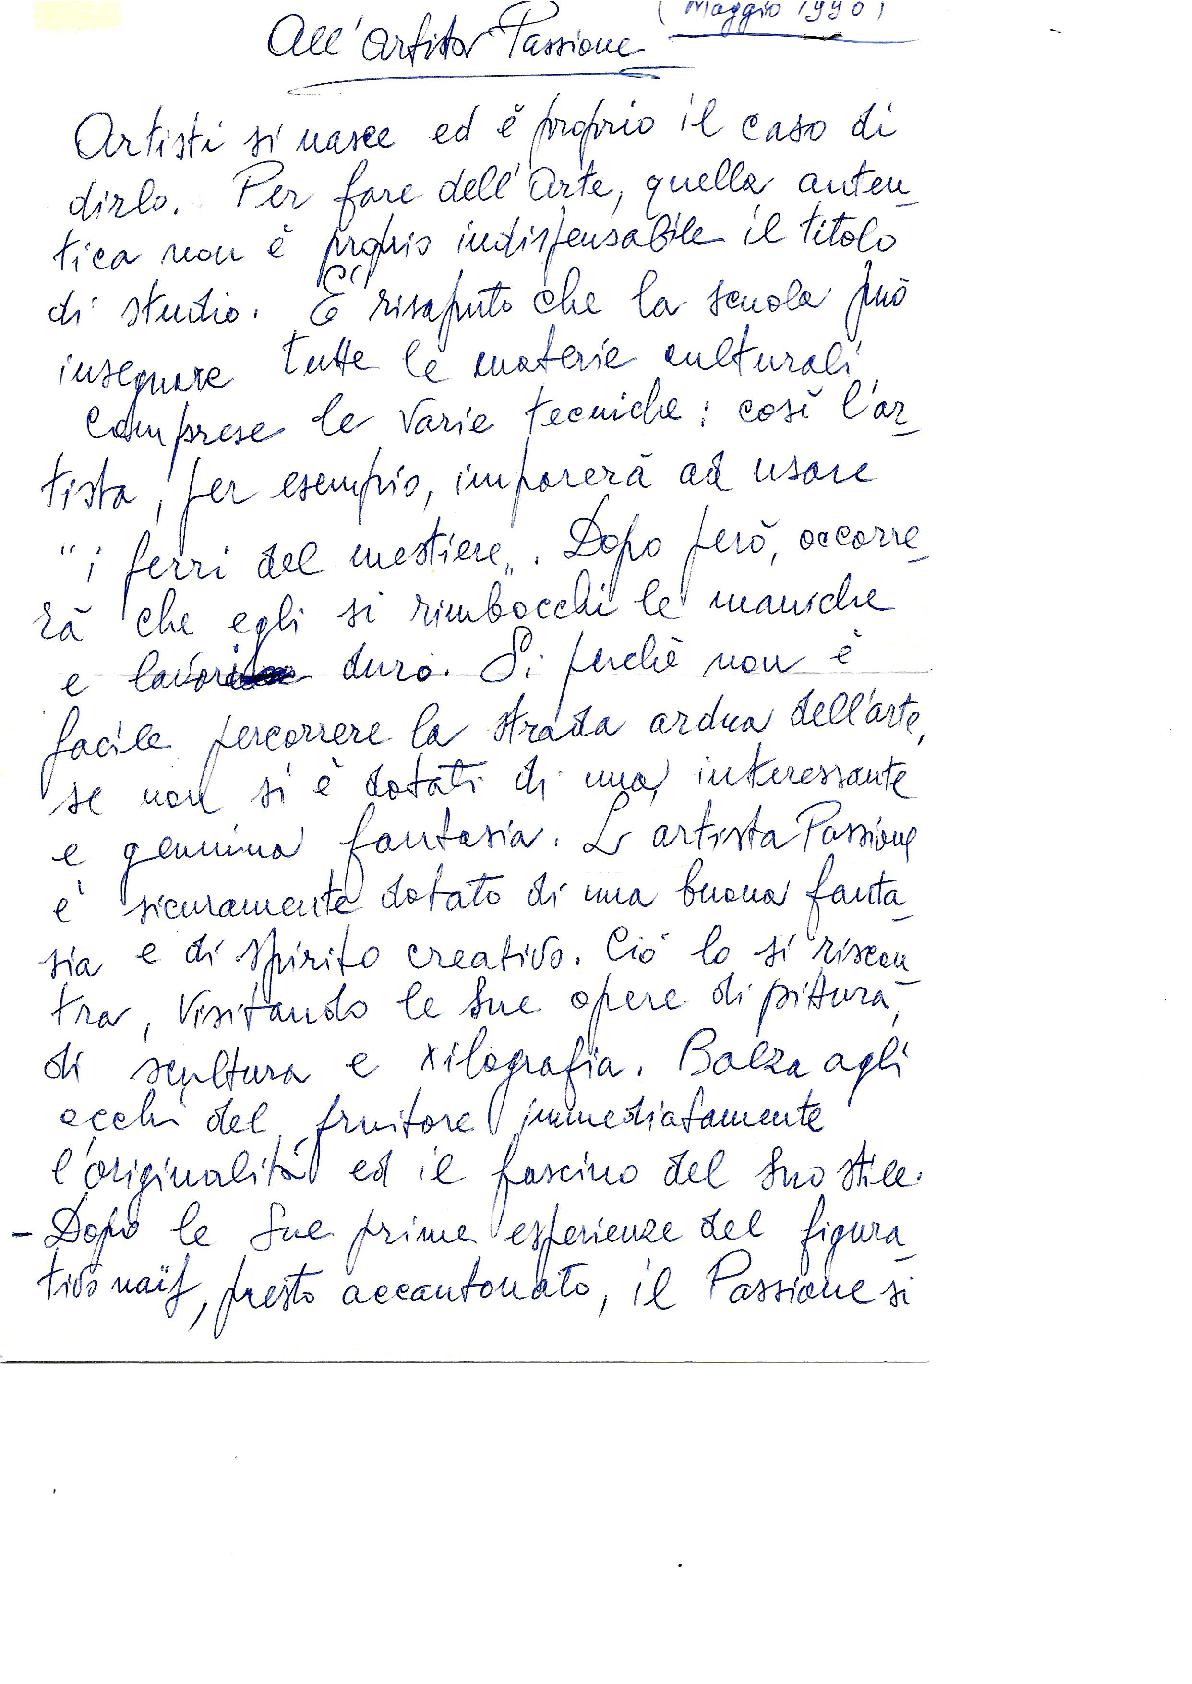 (Maggio 1990)
All'Artista Passione
Artisti si nasce ed è proprio il caso di
dirlo. Per fare dell'Arte, quella auten-
tica non è proprio indispensabile il titolo
di studio. È risaputo che la scuola può
insegnare tutte le materie culturali,
comprese le varie tecniche: così l'ar-
tista, per esempio, imparerà ad usare
"i ferri del mestiere". Dopo però, occorre-
rà che egli si rimbocchi le maniche
e lavori duro. Sì perchè non è
facile percorrere la strada ardua dell'arte,
se non si è dotati di una interessante
e genuina fantasia. L'artista Passione
è sicuramente dotato di una buona fanta-
sia e di spirito creativo. Ciò lo si riscon-
tra, visitando le Sue opere di pittura,
di scultura e xilografia. Balza agli
occhi del fruitore immediatamente
l'originalità ed il fascino del Suo stile.
- Dopo le Sue prime esperienze del figura-
tivo naïf, presto accantonato, il Passione si